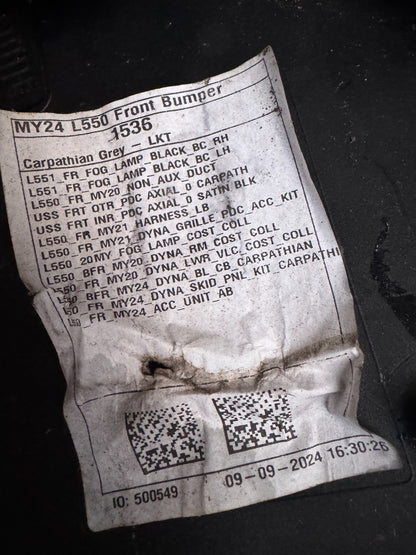 MY24 L550 Front Bumper
1536
Carpathian Grey – LKT
L551_FR_FOG_LAMP_BLACK_BC_RH
L551_FR_FOG_LAMP_BLACK_BC_LH
L550_FR_MY20_NON_AUX_DUCT
USS FRT OTR_PDC AXIAL_0 CARPATH
USS FRT INR_PDC AXIAL_0 SATIN BLK
L550_FR_MY21_HARNESS_LB
L550_FR_MY21_DYNA_GRILLE PDC_ACC_KIT
L550_20MY_FOG_LAMP_COST_COLL
L550_BFR_MY20_DYNA_RM COST_COLL
L550_FR_MY20_DYNA_LWR_VLC_COST_COLL
L550_BFR_MY24_DYNA_BL_CB_CARPATHIAN
L550_FR_MY24_DYNA SKID PNL_KIT_CARPATHI
L50_FR_MY24_ACC_UNIT_AB
09-09-2024 16:30:26
IO: 500549